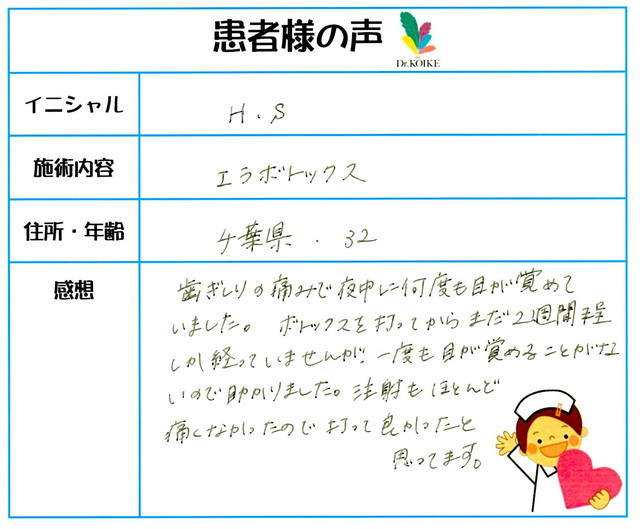 患者様の声
Dr.KOIKE
イニシャル
H.S
施術内容
エラボトックス
住所・年齢
千葉県.32
感想
歯ぎしりの痛みで夜中に何度も目が覚めて
いました。ボトックスを打ってからまだ2週間程
しか経っていませんが、一度も目が覚めることがな
いので助かりました。注射もほとんど
痛くなかったので打って良かったと
思ってます。